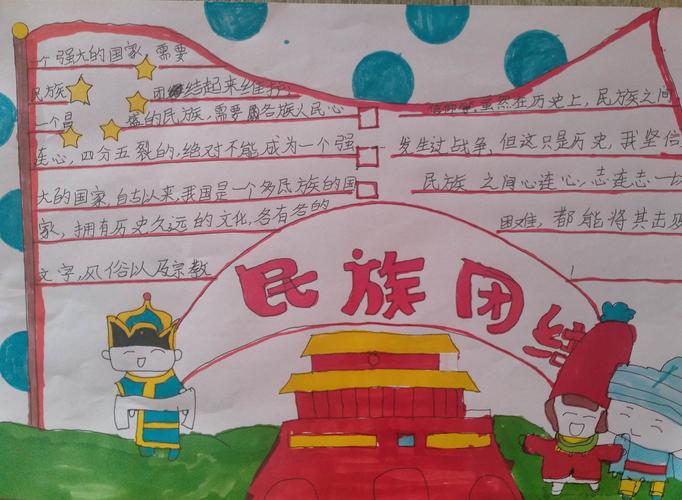 个强大的国家，需要
民族 团结起来维护
一个昌盛的民族，需要各族人民心
连心，四分五裂的，绝对不能成为一个强
大的国家，自古以来，我国是一个多民族的国
家，拥有历史久远的文化，各有各的
文字，风俗以及宗教
虽然在历史上，民族之间
发生过战争，但这只是历史，我坚信
民族之间心连心，志连志一切
困难，都能将其击
民族团结